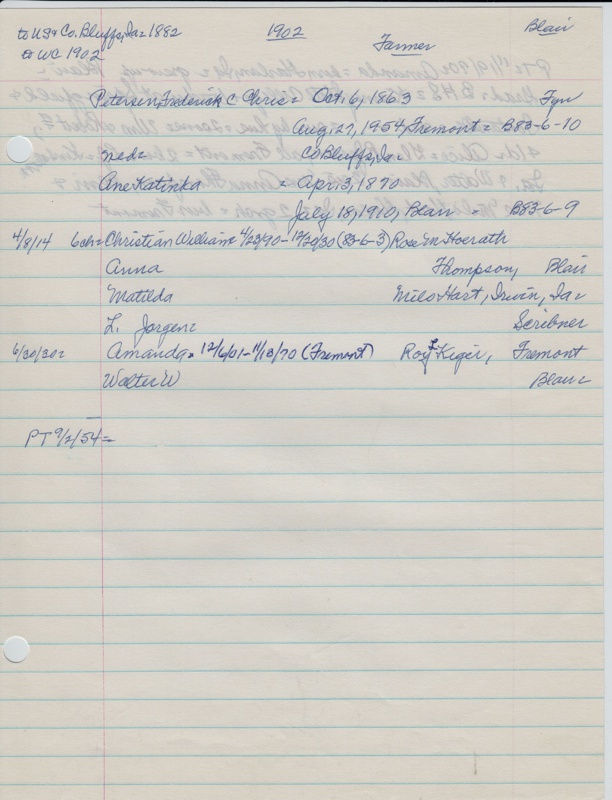 to US & Co. Bluffs, Ia = 1882 1902 Blair
to WC 1902 Farmer
Petersen, Frederick C Chris = Oct. 6, 1863 Fyn
Aug. 27, 1954, Fremont = B83-6-10
nedz Co Bluffs, Ia =
Ane Katinka Apr. 3, 1870
July 18, 1910, Blair = B83-6-9
4/8/14 6ch = Christian William = 4/23/90 - 12/20/30 (83-6-3) Rose M Hoerath
Anna Thompson, Blair
Matilda Milo Hart, Irwin, Ia =
L. Jorgen = Scribner
6/30/30 = Amanda = 12/6/01 - 11/13/70 (Fremont) Roy L Kiger, Fremont
Walter W Blair
PT 9/2/54 =